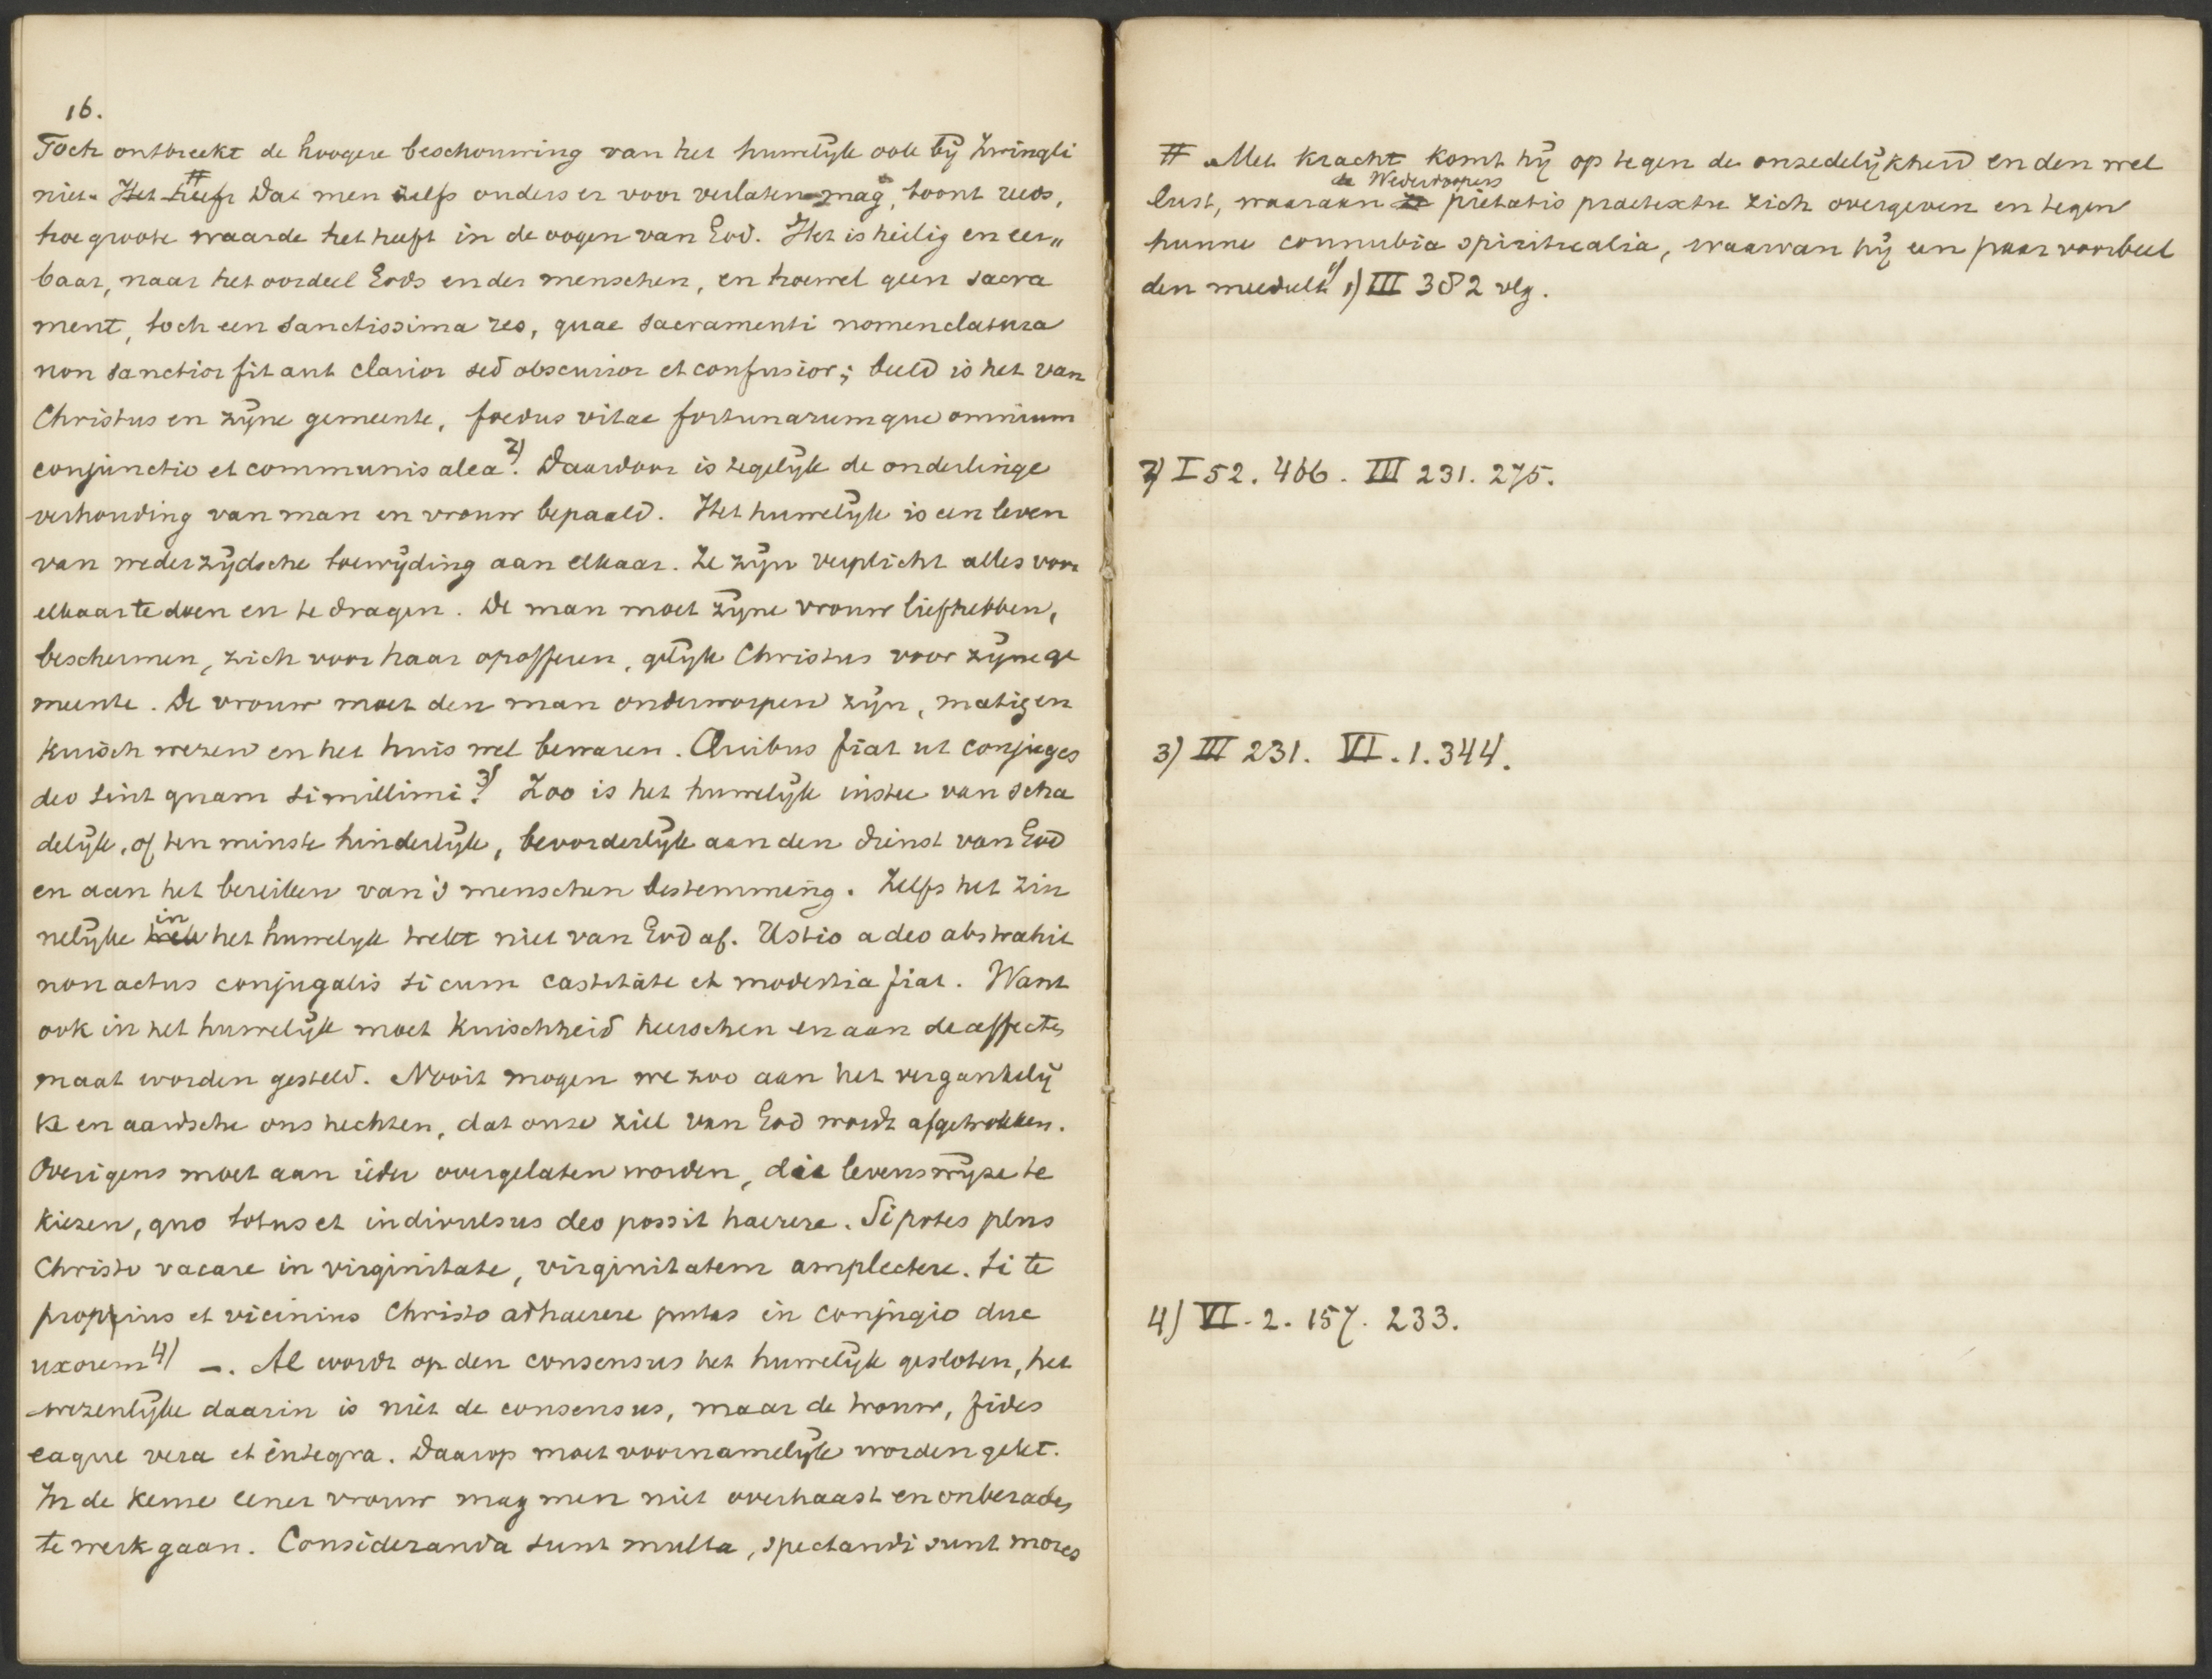 16.
Toch ontbreekt de hoogere beschouwing van het huwelijk ook bij Zwingli
niet. # ~~Het heeft~~ Dat men zelfs ouders er voor verlaten mag, toont reeds,
hoe groote waarde het heeft in de oogen van God. Het is heilig en eer„
baar, naar het oordeel Gods en der menschen, en hoewel geen sacra
ment, toch een sanctissima res, quae sacramenti nomenclatura
non sanctior fit aut clarior sed obscurior et confusior; beeld is het van
Christus en zijne gemeente, foedus vitae fortunarumque omnium
conjunctio et communis alea 2). Daardoor is tegelijk de onderlinge
verhouding van man en vrouw bepaald. Het huwelijk is een leven
van wederzijdsche toewijding aan elkaar. Ze zijn verplicht alles voor
elkaar te doen en te dragen. De man moet zijne vrouw liefhebben,
beschermen, zich voor haar opofferen, gelijk Christus voor zijne ge
meente. De vrouw moet den man onderworpen zijn, matig en
kuisch wezen en het huis wel bewaren. Quibus fiat ut conjuges
deo sint quam simillimi 3). Zoo is het huwelijk instee van scha
delijk, of ten minste hinderlijk, bevorderlijk aan den dienst van God
en aan het bereiken van 's menschen bestemming. Zelfs het zin
nelijke in het huwelijk trekt niet van God af. Ustio a deo abstrahit
non actus conjugalis si cum castitate et modestia fiat. Want
ook in het huwelijk moet kuischheid heerschen en aan de affecten
maat worden gesteld. Nooit mogen we zoo aan het vergankelij
ke en aardsche ons hechten, dat onze ziel van God wordt afgetrokken.
Overigens moet aan ieder overgelaten worden, die levenswijze te
kiezen, quo totus et indivulsus deo possit haerere. Si potes plus
Christo vacare in virginitate, virginitatem amplectere. Si te
propius et vicinius Christo adhaerere putas in conjugio duc
uxorem 4) –. Al wordt op den consensus het huwelijk gesloten, het
wezenlijke daarin is niet de consensus, maar de trouw, fides
eaque vera et integra. Daarop moet voornamelijk worden gelet.
In de keuze eener vrouw mag men niet overhaast en onberaden
te werk gaan. Consideranda sunt multa, spectandi sunt mores
# Met kracht komt hij op tegen de onzedelijkheid en den wel
lust, waaraan de Wederdoopers ~~ze~~ pietatis praetextu zich overgeven en tegen
hunne connubia spiritualia, waarvan hij een paar voorbeel
den meedeelt 1) 1) III 382 vlg.
2) I 52. 466. III 231. 275.
3) III 231. VI. 1. 344.
4) VI. 2. 157. 233.